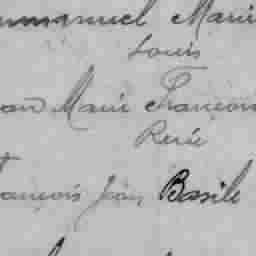 mmanuel Marie
Louis
ean Marie François
René
rançois Jean Basile